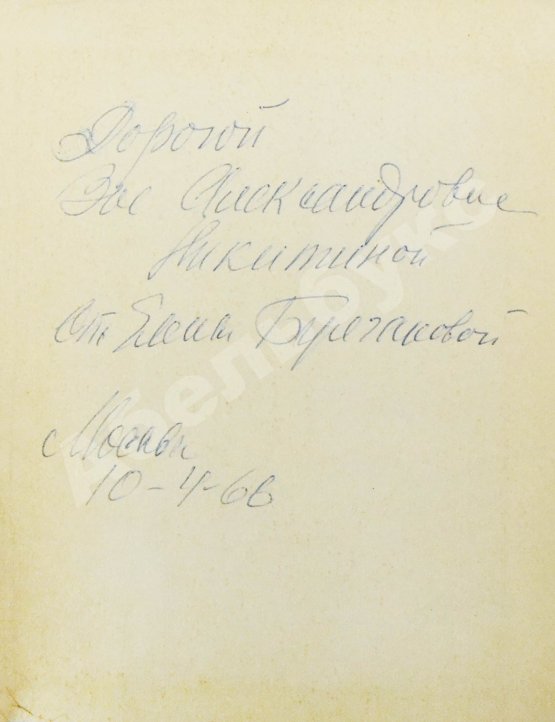 Дорогой
Зое Александровне
Никитиной
От Елены Булгаковой
Москва
10-4-66
Абельбукс